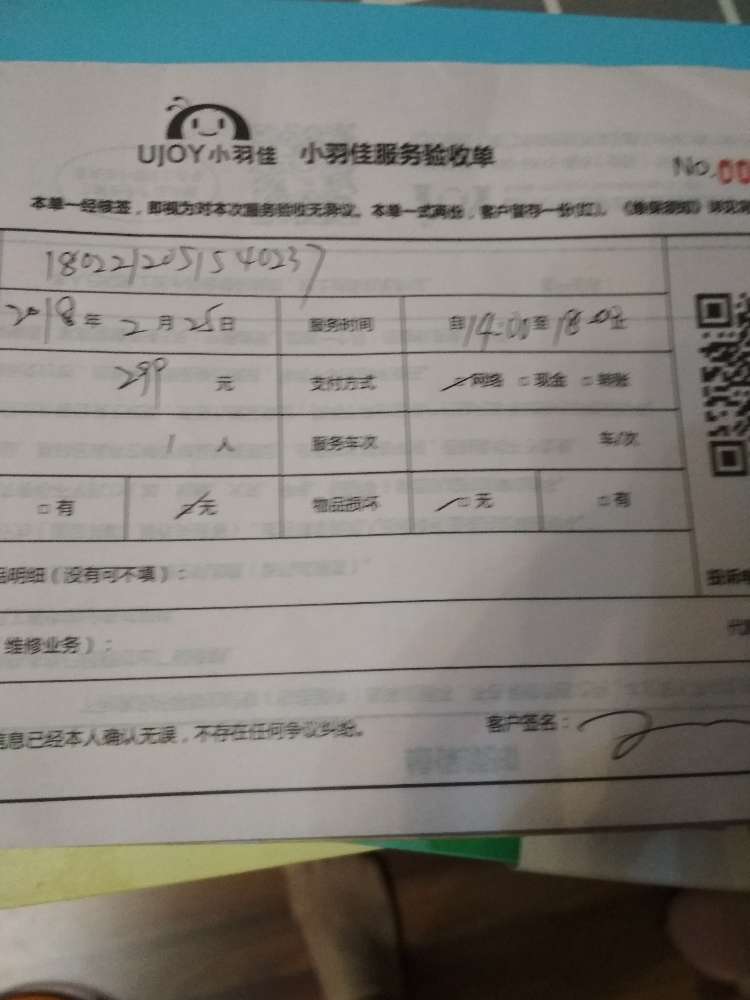 UJOY小羽佳 小羽佳服务验收单
No.00
本单一经修签，即视为对本次服务验收无异议。本单一式两份，客户留存一份(红)。
1802212051540237
2018年2月25日 服务时间 自14:00至18:00止
299元 支付方式 网络 □现金 □转账
1人 服务车次 车/次
□有 无 物品损坏 □无 □有
明细（没有可不填）：
维修业务）：
信息已经本人确认无误，不存在任何争议纠纷。 客户签名：